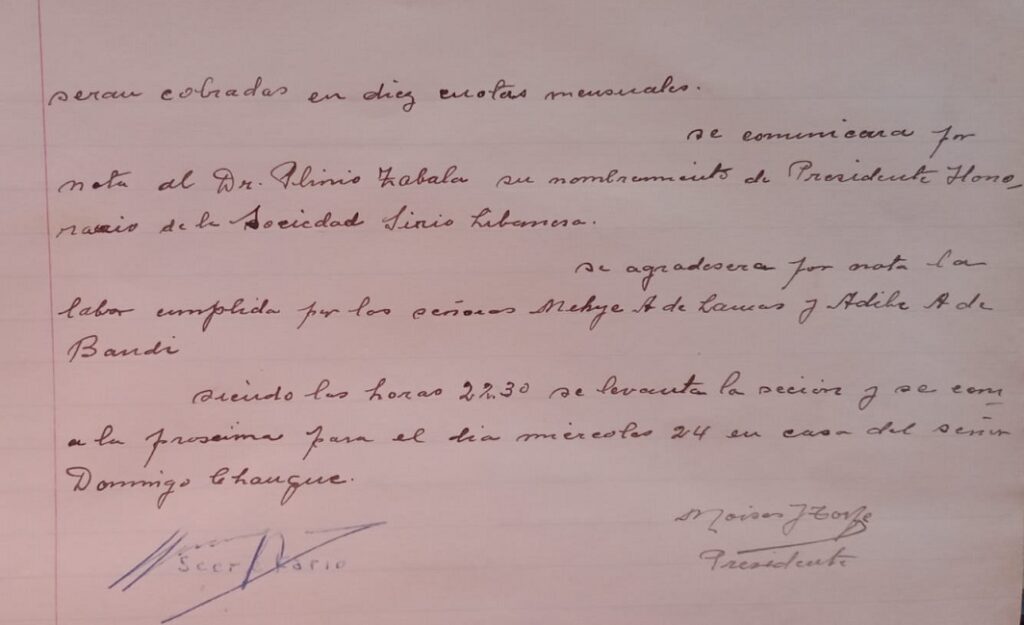 seran cobradas en diez cuotas mensuales.
se comunicara por
nota al Dr. Plinio Zabala su nombramiento de Presidente Hono_
rario de la Sociedad Sirio Libanesa.
se agradesera por nota la
labor cumplida por las señoras Mehye A de Lamas y Adibe A de
Bandi
siendo las horas 22.30 se levanta la seción y se con
a la proscima para el dia miercoles 24 en casa del señor
Domingo Chauque.
Moises J
Secretario
Presidente